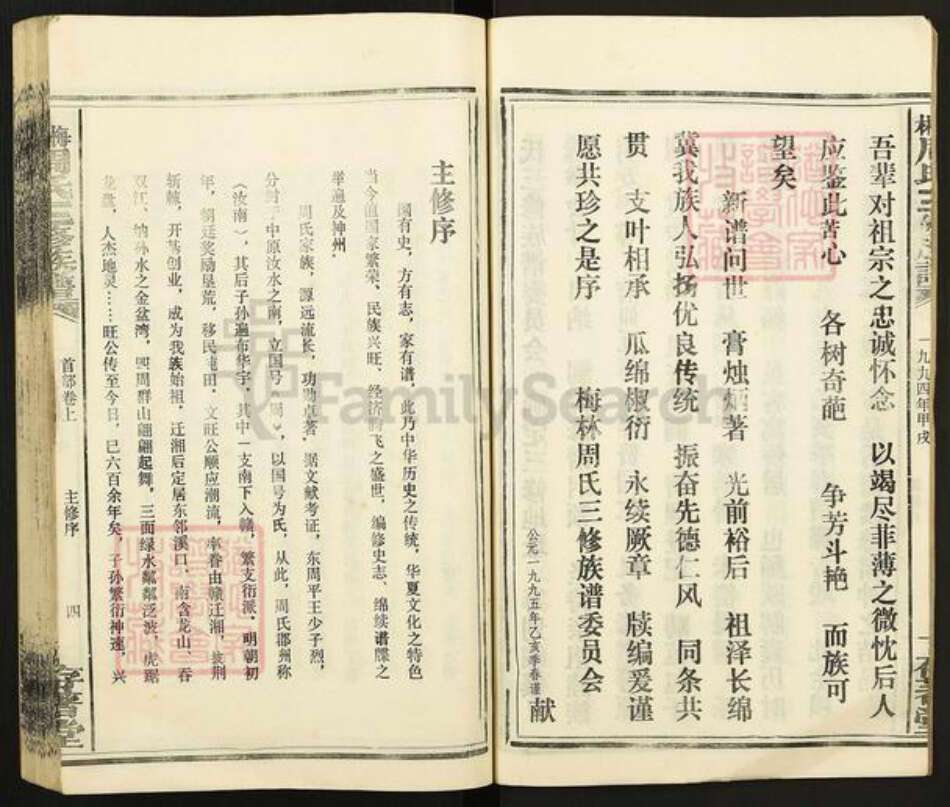 吾辈对祖宗之忠诚怀念 以竭尽菲薄之微忱后人
应鉴此苦心 各树奇葩 争芳斗艳 而族可
望矣
新谱问世 膏烛炳著 光前裕后 祖泽长绵
冀我族人弘扬优良传统 振奋先德仁风 同条共
贯 支叶相承 瓜绵椒衍 永续厥章 牍编爰谨
愿共珍之是序 梅林周氏三修族谱委员会
公元一九九五年乙亥季春谨献
一九九四年甲戌
主修序
国有史，方有志，家有谱，此乃中华历史之传统，华夏文化之特色
当今值国家繁荣、民族兴旺、经济腾飞之盛世，编修史志、绵续谱牒之
举遍及神州。
周氏家族，源远流长，功勋卓著，据文献考证，东周平王少子烈，
分封于中原汝水之南，立国号《周》，以国号为氏，从此，周氏郡州称
《汝南》，其后子孙遍布华宇，其中一支南下入赣，繁支衍派，明朝初
年，朝廷奖励垦荒，移民屯田，文旺公顺应潮流，率眷由赣迁湘，披荆
斩棘，开基创业，成为我族始祖，迁湘后定居东邻溪口、南含龙山、吞
双江、纳孙水之金盆湾，四周群山翩翩起舞，三面绿水粼粼泛波，虎踞
龙盘，人杰地灵……旺公传至今日，已六百余年矣，子孙繁衍神速，兴
首部卷上
主修序
四
FamilySearch